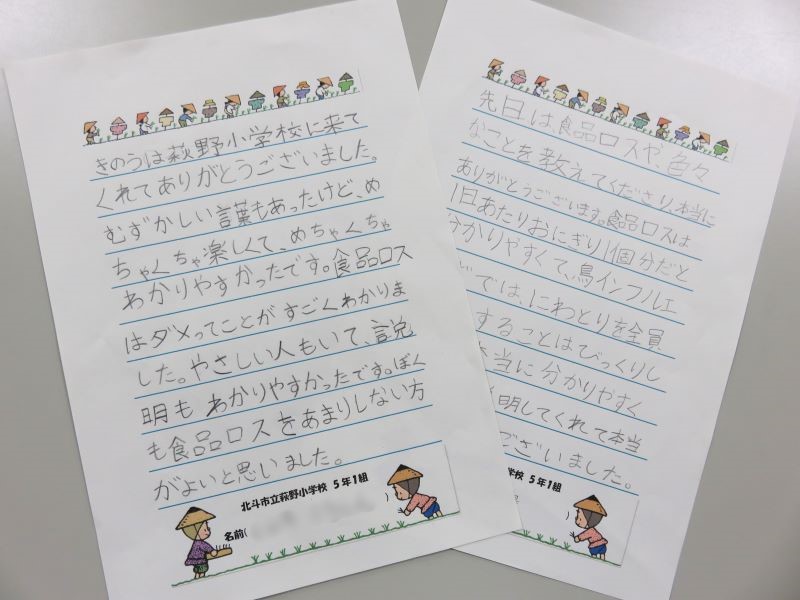 きのうは萩野小学校に来て
くれてありがとうございました。
むずかしい言葉もあったけど、め
ちゃくちゃ楽しくて、めちゃくちゃ
わかりやすかったです。食品ロス
はダメってことがすごくわかりま
した。やさしい人もいて、説
明もわかりやすかったです。ぼく
も食品ロスをあまりしない方
がよいと思いました。
北斗市立萩野小学校 5年1組
名前( )
先日は、食品ロスや、色々
なことを教えてくださり、本当に
ありがとうございます。食品ロスは
1日あたりおにぎり1個分だと
分かりやすくて、鳥インフルエ
では、にわとりを全員
することはびっくりし
本当に分かりやすく
明してくれて本当
ございました。
学校 5年1組
)